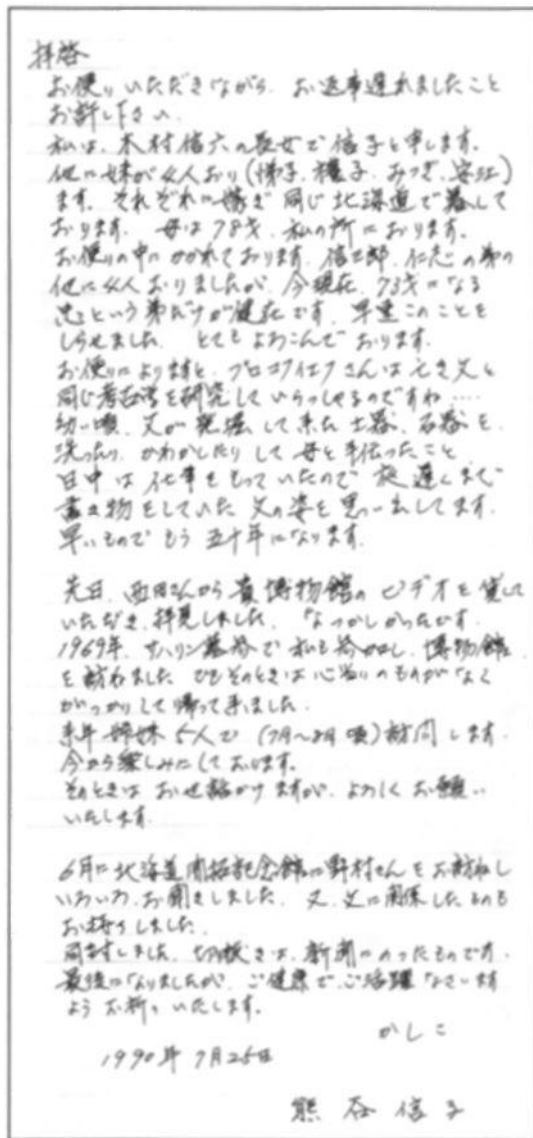 拝啓
お便りいただきながら、お返事遅れましたこと
お許し下さい。
私は、木村信六の長女で信子と申します。
他に妹が4人おり(悌子、 みつぎ、安江)
ます。それぞれに嫁ぎ同じ北海道で暮して
おります。母は78才、私の所におります。
お便りの中にかかれております、信士郎、仁志の弟の
他に4人おりましたが、今現在、73才になる
忠という弟だけが健在です。早速このことを
しらせました。とてもよろこんでおります。
お便りによりますと、プロコフィエフさんは亡き父と
同じ考古学を研究していらっしゃるのですね....
幼い頃、父が発掘して来た土器、石器を、
洗ったり、かわかしたりして母と手伝ったこと
日中は仕事をもっていたので夜遅くまで
書き物をしていた父の姿を思い出してます。
早いものでもう五十年になります。
先日、西田さんから貴博物館のビデオを貸して
いただき、拝見しました。なつかしかったです。
1969年、サハリン墓参で私も参加し、博物館
を訪ねました でもそのときは心当りのものがなく
がっかりして帰って来ました。
来年姉妹5人で(7月~8月頃)訪問します。
今から楽しみにしております。
そのときはお世話かけますが、よろしくお願い
いたします。
6月に北海道開拓記念館に野村さんをお訪ねし
いろいろ、お聞きしました。又、父に関係したものも
お持ちしました。
同封しました、切抜きは、新聞にのったものです。
最後になりましたが、ご健康で、ご活躍なさいます
ようお祈りいたします。
かしこ
1990年7月25日
熊谷信子